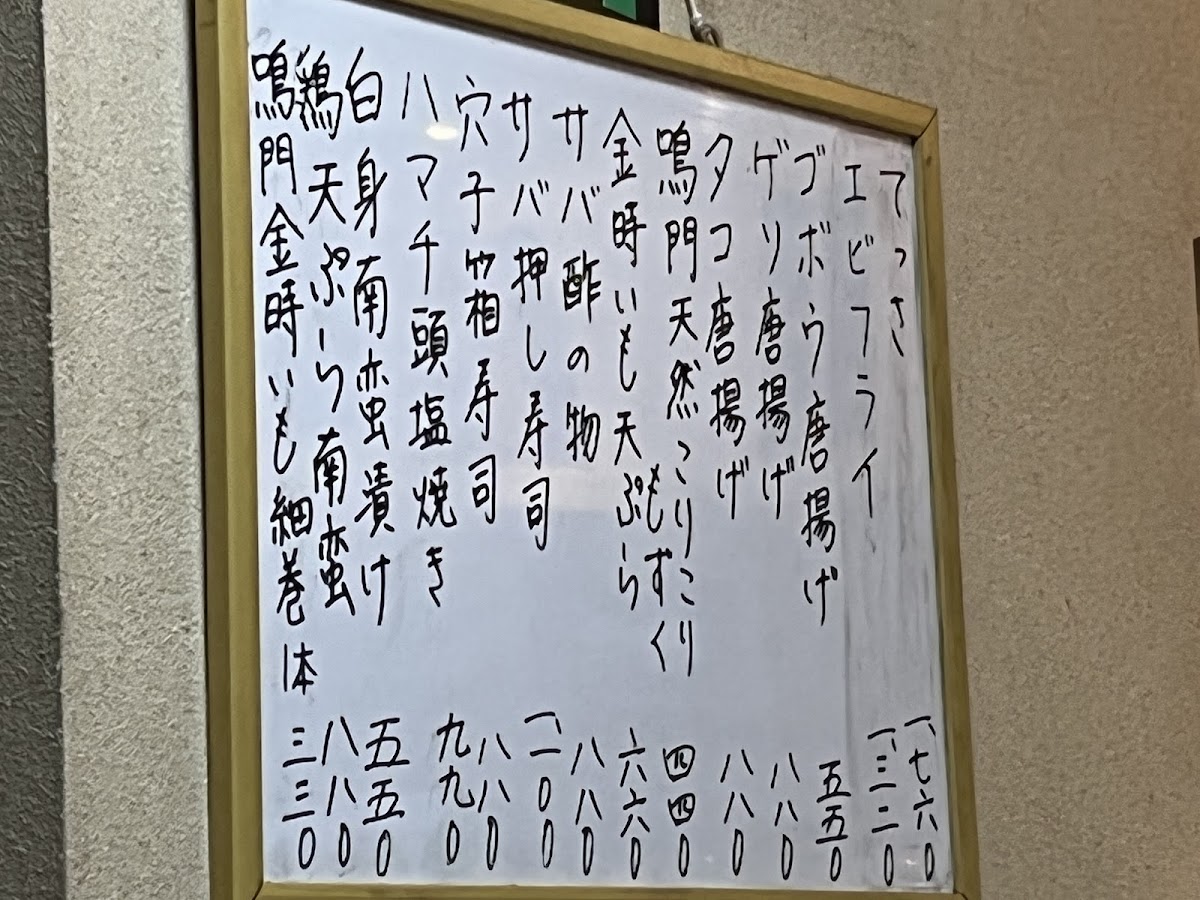 てっさ 一、七六0
エビフライ 一、三二0
ゴボウ唐揚げ 五五0
ゲソ唐揚げ 八八0
タコ唐揚げ 八八0
鳴門天然こりこりもずく 四四0
金時いも天ぷら 六六0
サバ酢の物 八八0
サバ押し寿司 一、一00
穴子箱寿司 八八0
ハマチ頭塩焼き 九九0
白身南蛮漬け 五五0
鶏天ぷら南蛮 八八0
鳴門金時いも細巻1本 三三0